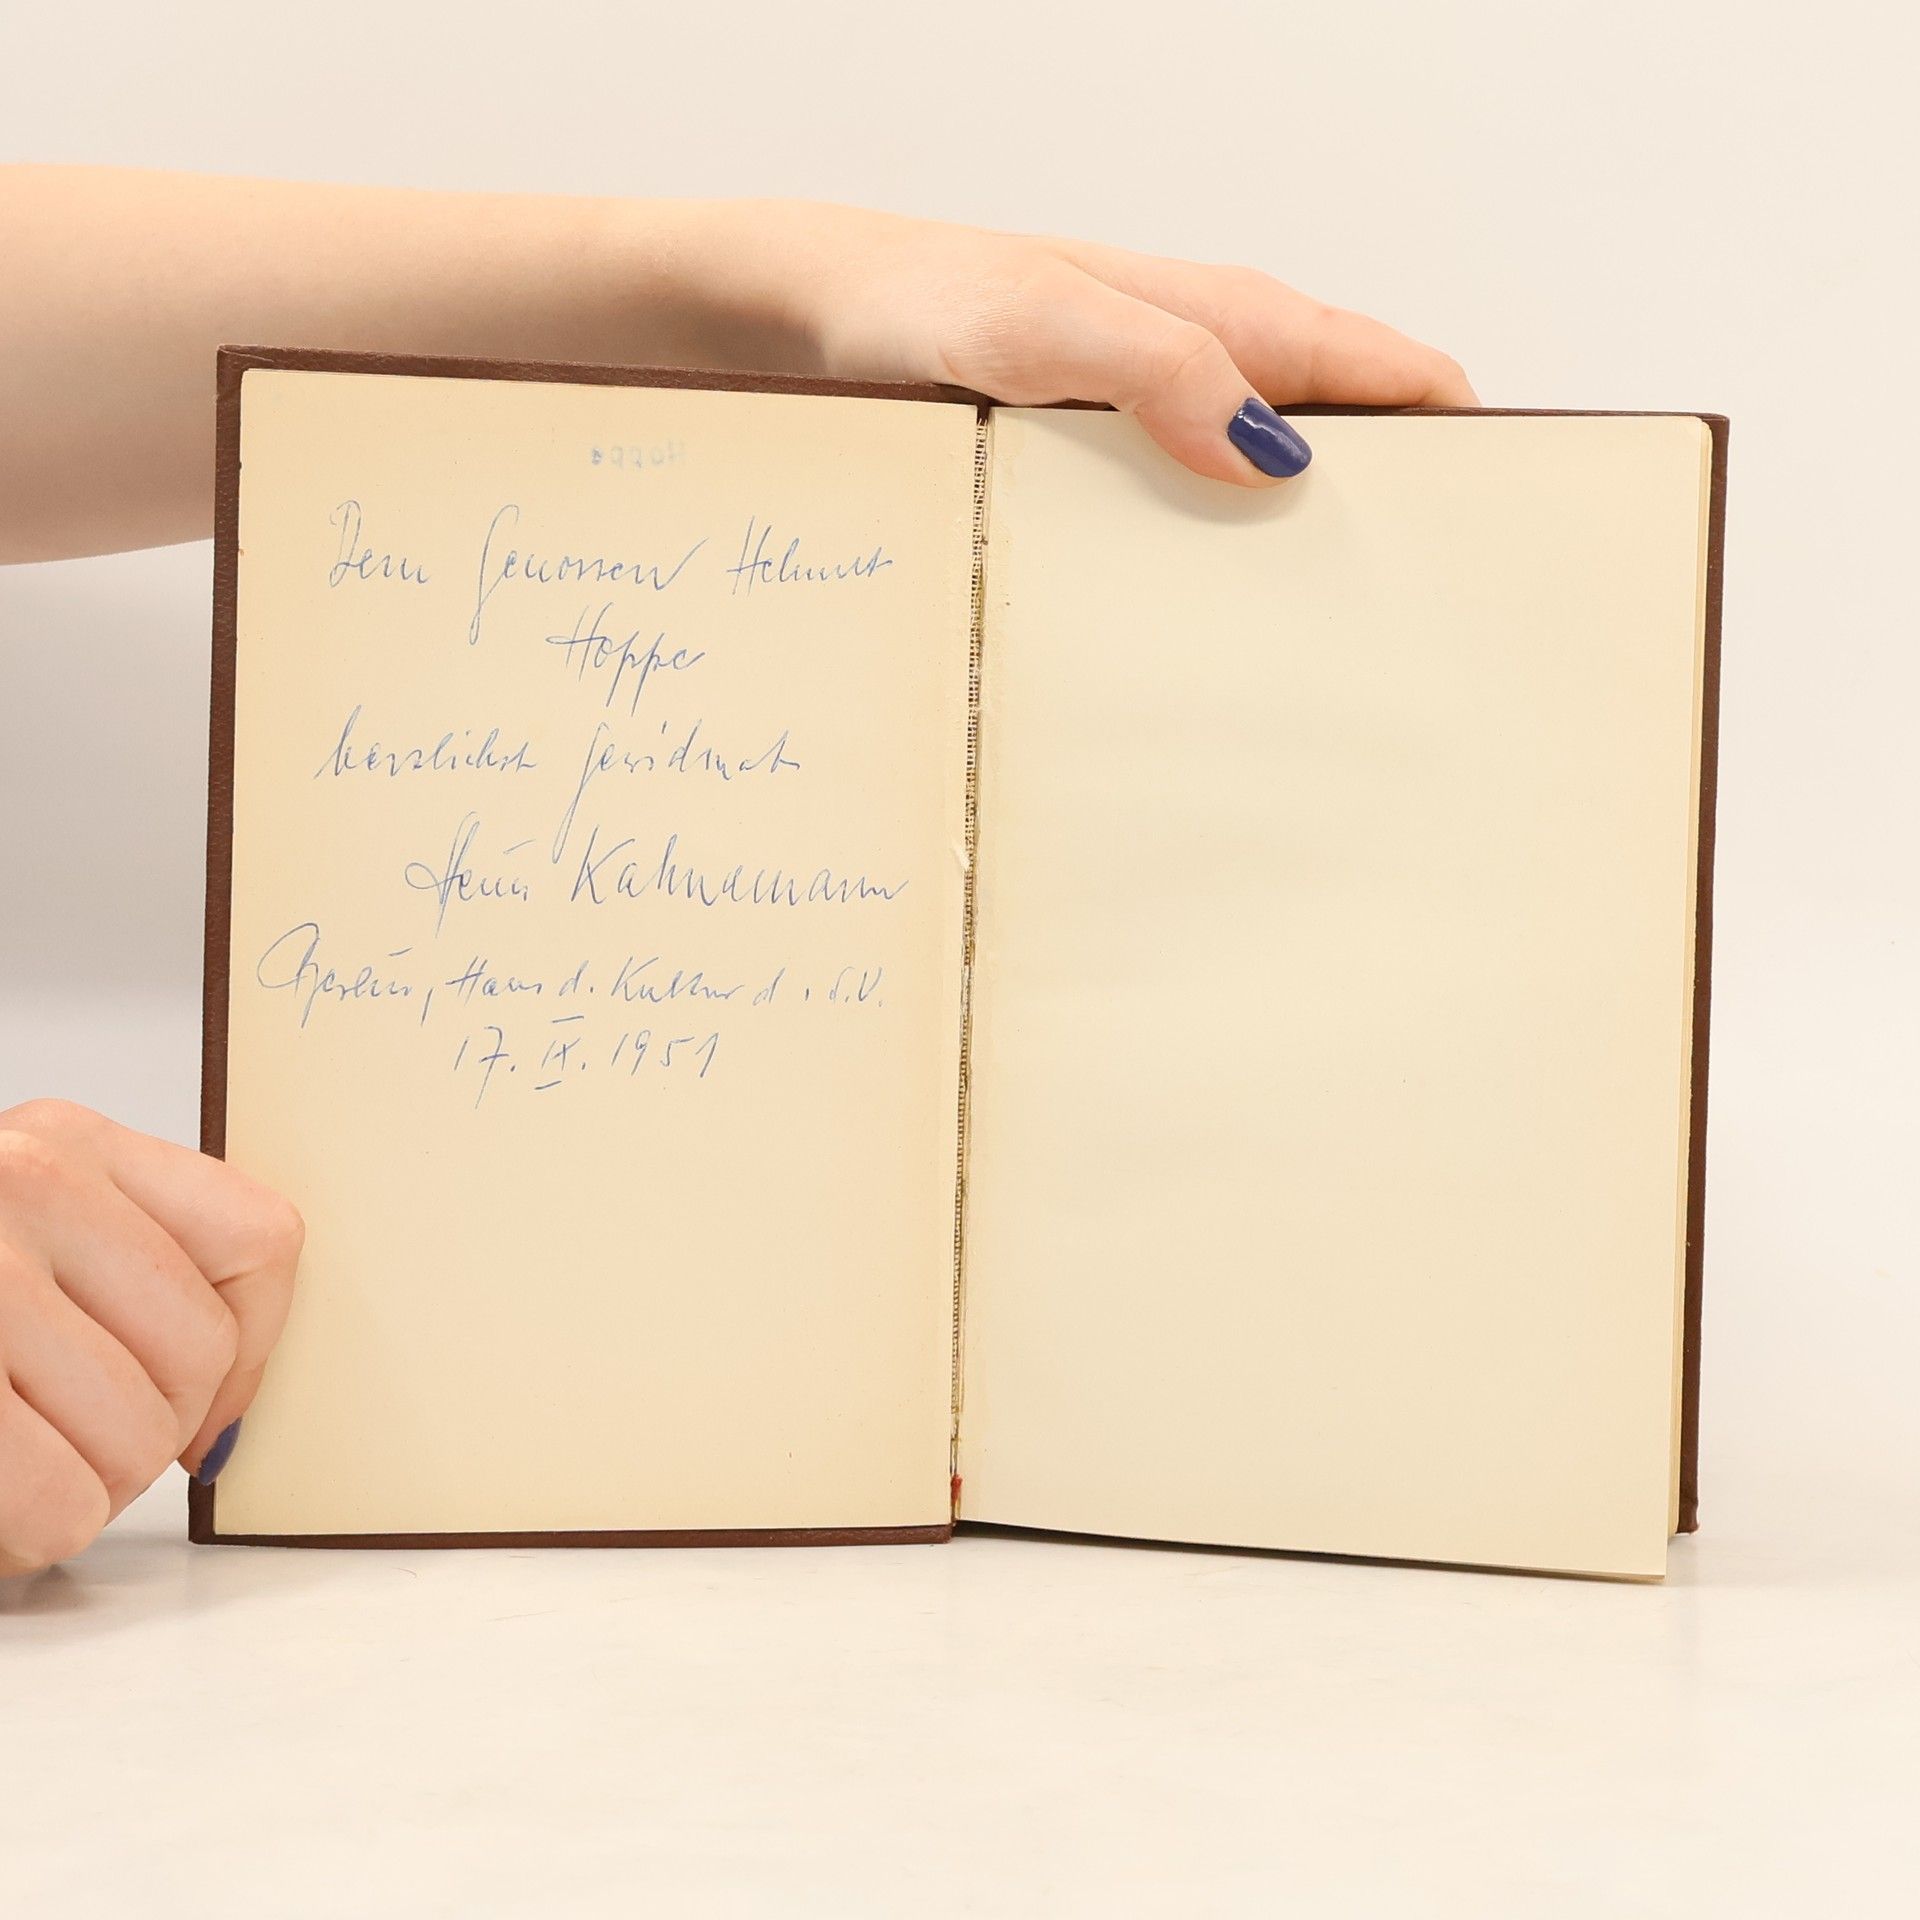 Hoppe
Dem Genossen Helmut
Hoppe
herzlichst gewidmet
Heinz Kahnemann
Berlin, Haus d. Kultur d. S.U.
17. IX. 1951